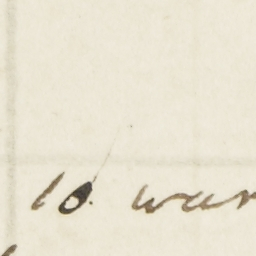 10. war